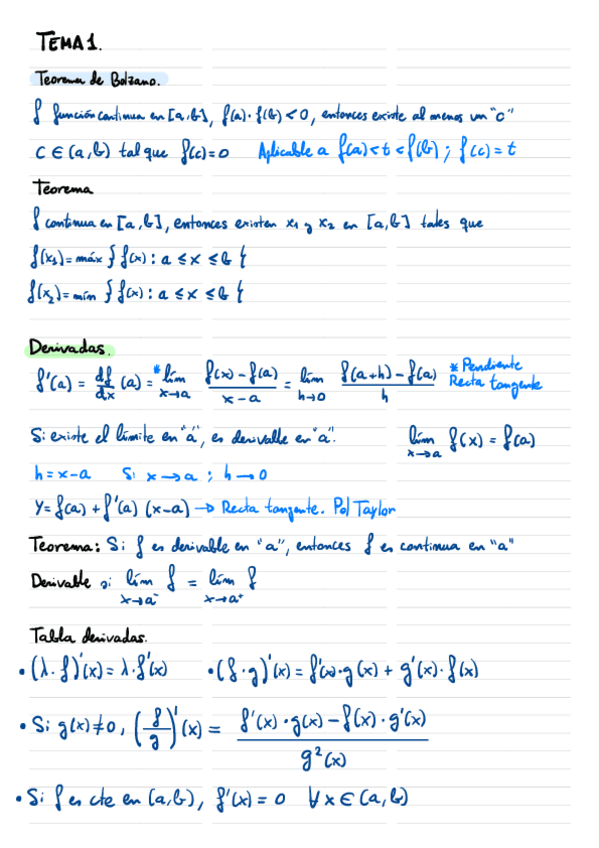 TEMA 1.
Teorema de Bolzano.
f función continua en [a,b], f(a)·f(b)<0, entonces existe al menos un "c"
c∈(a,b) tal que f(c)=0 Aplicable a f(a)<t<f(b); f(c)=t
Teorema
f continua en [a,b], entonces existen x₁ y x₂ en [a,b] tales que
f(x₁)=máx }f(x): a≤x≤b{
f(x₂)=mín }f(x): a≤x≤b{
Derivadas.
f'(a) = df/dx (a) = *lím x→a (f(x)-f(a))/(x-a) = lím h→0 (f(a+h)-f(a))/h * Pendiente Recta tangente
Si existe el límite en "a", es derivable en "a". lím x→a f(x) = f(a)
h=x-a Si x→a ; h→0
Y=f(a)+f'(a)(x-a) → Recta tangente. Pol Taylor
Teorema: Si f es derivable en "a", entonces f es continua en "a"
Derivable si lím x→a⁻ f = lím x→a⁺ f
Tabla derivadas.
•(λ·f)'(x)=λ·f'(x) •(f·g)'(x)=f'(x)·g(x)+g'(x)·f(x)
•Si g(x)≠0, (f/g)'(x) = (f'(x)·g(x)-f(x)·g'(x))/g²(x)
•Si f es cte en (a,b), f'(x)=0 ∀x∈(a,b)